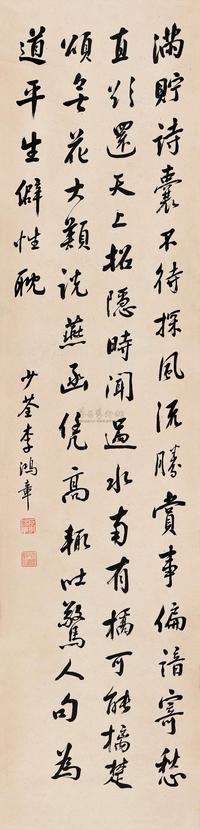 满貯詩囊不待探風流勝賞事偏諳寄愁
直欲還天上招隱時聞過水南有橘可能摛楚
頌無花大難説燕函凭高輒吐驚人句為
道平生僻性耽
少荃李鴻章